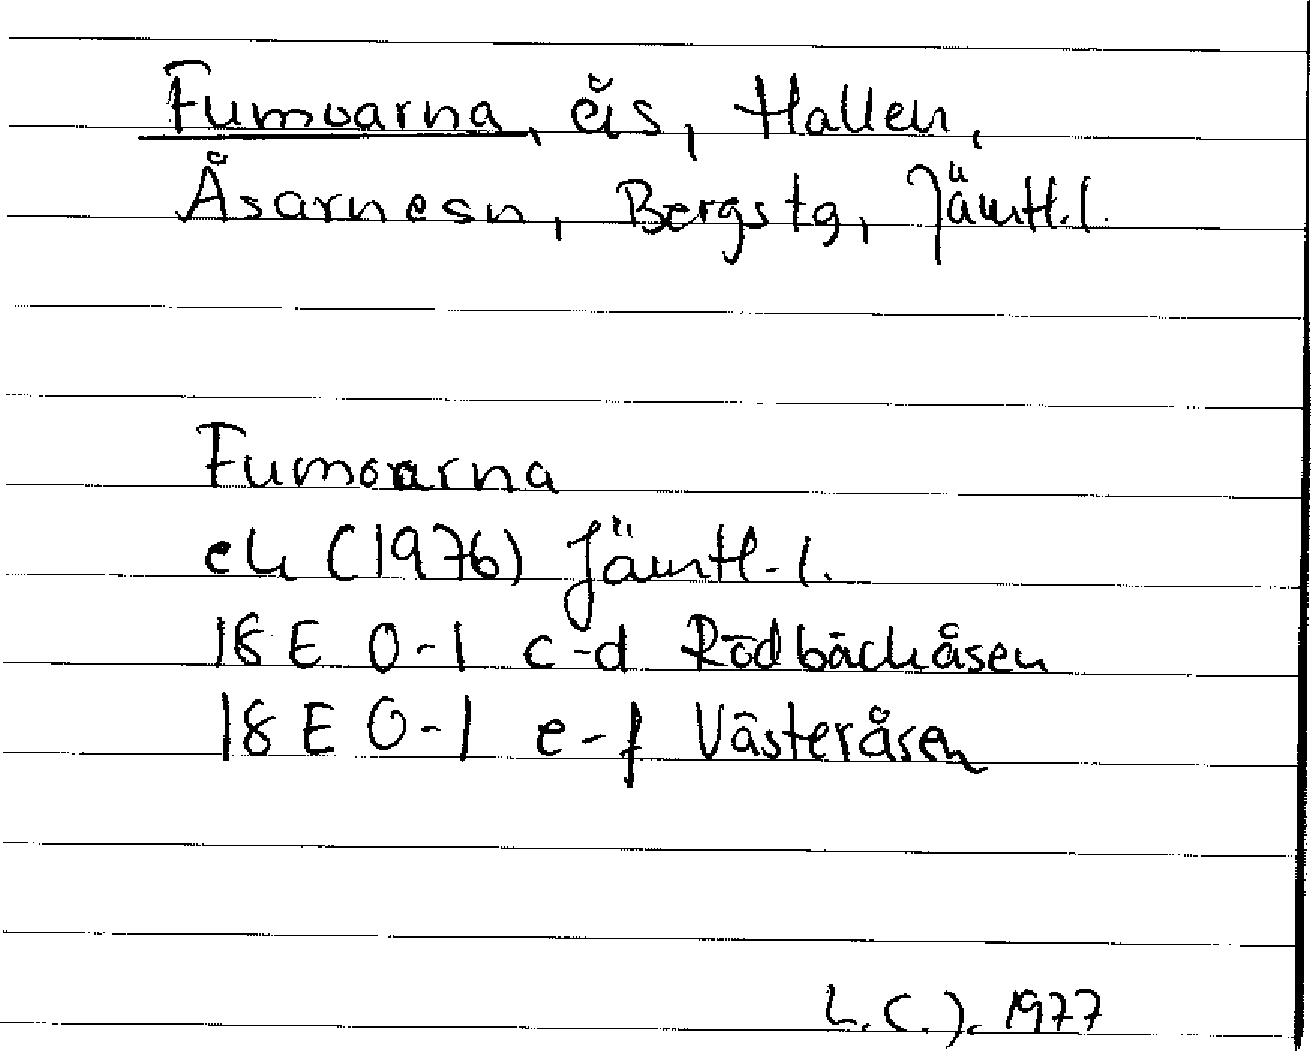 Fumoarna, ås, Hallen,
Åsarnesn, Bergs tg, Jämtl.l.
Fumoarna
ek (1976) Jämtl.l.
18 E 0-1 c-d Rödbäckåsen
18 E 0-1 e-f Västeråsen
L.C.J. 1977